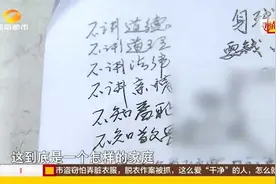 湖南都市
不讲道德
不讲道理
不讲法律
不讲亲情
不知羞耻
不知
身
要钱
这到底是一个怎样的家庭
市盗窃怕弄脏衣服，脱衣作案被抓，这么爱“干净”的人，怎么